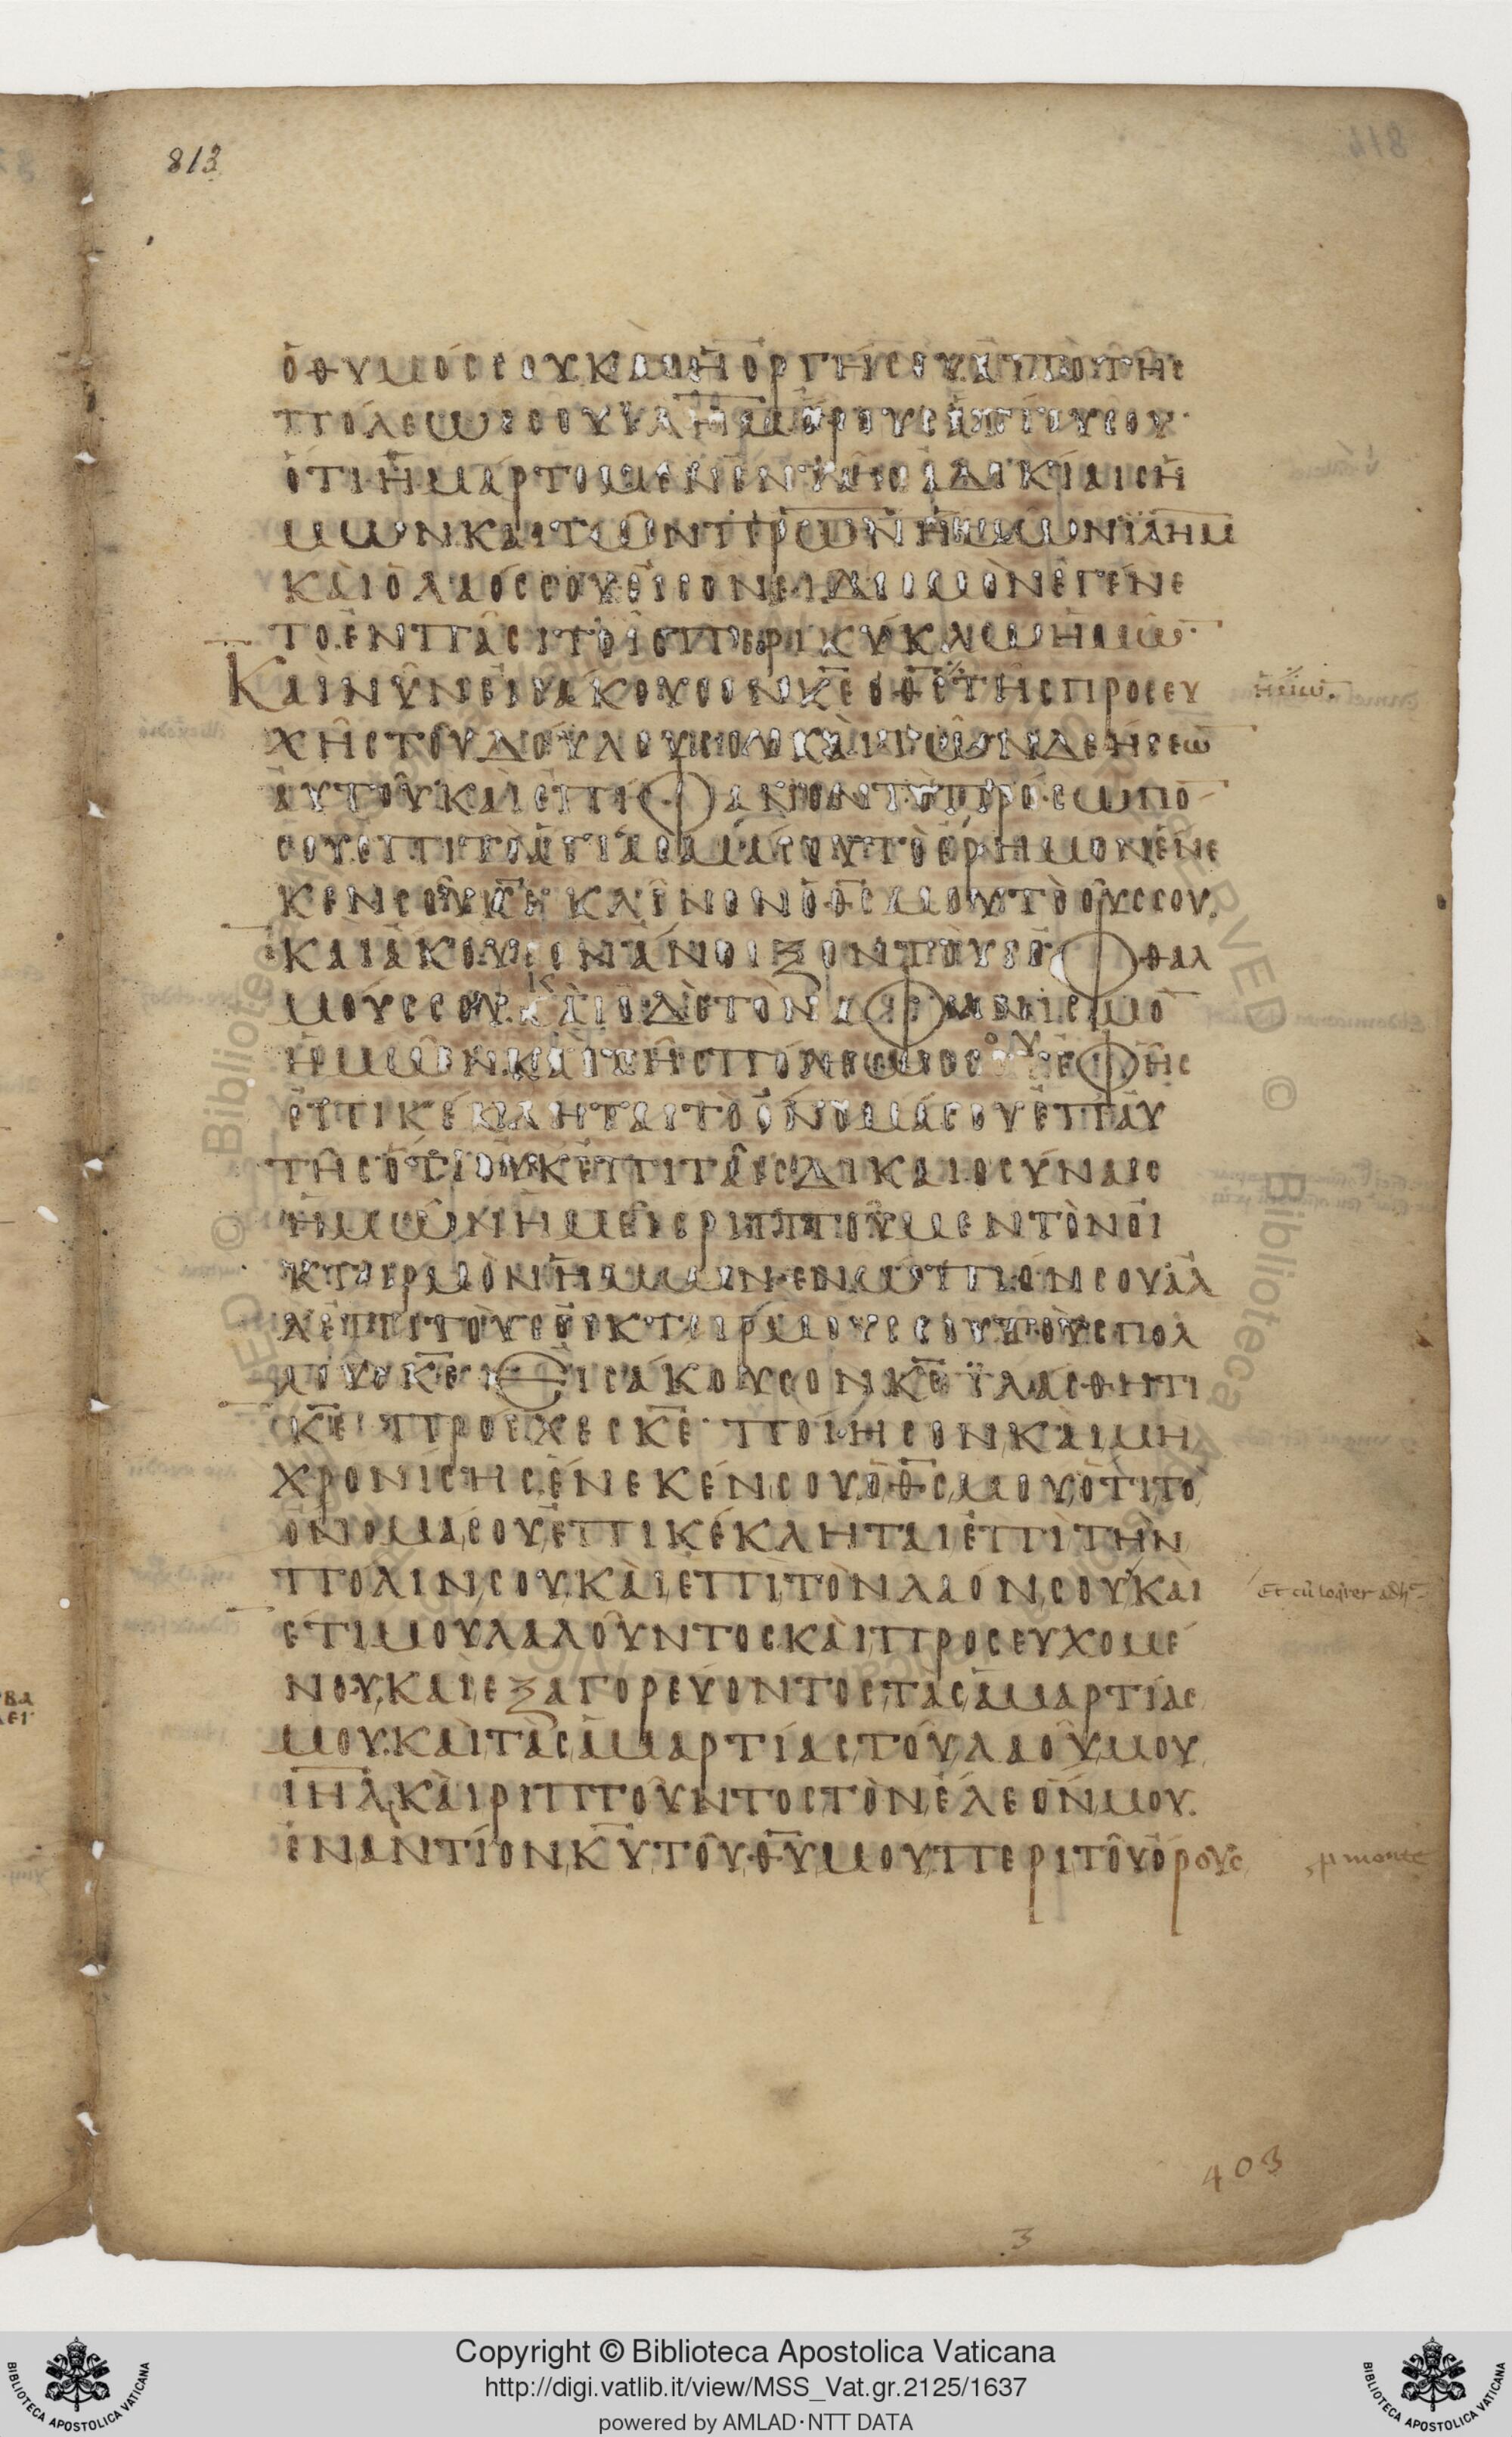 813
ὁθυμόςσουκαιἡὀργήσουἀπὸτῆς
πόλεωςσουϊλημὄρουςἁγίουσου·
ὅτιἡμάρτομενἐνταῖςἀδικίαιςἡ
μῶνκαιτῶνπρ̅ω̅ν̅ἡμῶνϊλημ
καὶὁλαόςσουεἰςὀνειδισμὸνἐγένε
τοἐνπᾶσιτοῖςπερικύκλωἡμω̅·
Καὶνῦνεἰσάκουσονκ̅ε̅ὁθ̅ς̅τῆςπροσευ
χῆςτοῦδούλουσουκαὶτῶνδεήσεω̅
αὐτοῦκαὶἐπίφανοντὸπρόσωπο̅
σουἐπιτὸἁγίασμάσουτὸἔρημονἕνε
κενσοῦκ̅ε̅κλῖνονὁθ̅ς̅μουτὸοὖςσου.
καιἄκουσονἄνοιξοντοὺςὀφθαλ
μούςσουκαὶἴδετὸνἀφανισμο̅
ἡμῶνκαὶτῆςπόλεωςσουἐφῆς
ἐπικέκληταιτὸὄνομάσουἐπἀυ
τῆςὅτιοὐκἐπιταῖςδικαιοσύναις
ἡμῶνἡμεῖςριπτοῦμεντὸνοἰ
κτειρμὸνἡμῶνενώπιόνσουἀλ
λἐπιτοὺςοἰκτειρμούςσουτοὺςπολ
λούσκ̅ε̅Εἰσάκουσονκ̅ε̅ϊλάσθητι
κ̅ε̅πρόσχεςκ̅ε̅·ποίησονκαὶμη
χρονίσηςἕνεκένσουὁθ̅ς̅μουὅτιτο
ὄνομάσουἐπικέκληταιἐπὶτὴν
πόλινσουκαὶἐπὶτὸνλαόνσουκαὶ
έτιμουλαλοῦντοςκαὶπροσευχομέ
νουκαὶεξαγορεύοντοςτὰςἁμαρτίας
μουκαὶτὰςἁμαρτίαςτοῦλαοῦμου
ιη̅λ̅καὶριπτοῦντοςτὸνἔλεόνμου
ἐναντίονκ̅υ̅τοῦθ̅υ̅μουπεριτοῦὄρους
ἡμῶν.
Et cū loq̄rer adh̄
ꝑ monte
403
3
Copyright © Biblioteca Apostolica Vaticana
http://digi.vatlib.it/view/MSS_Vat.gr.2125/1637
powered by AMLAD·NTT DATA